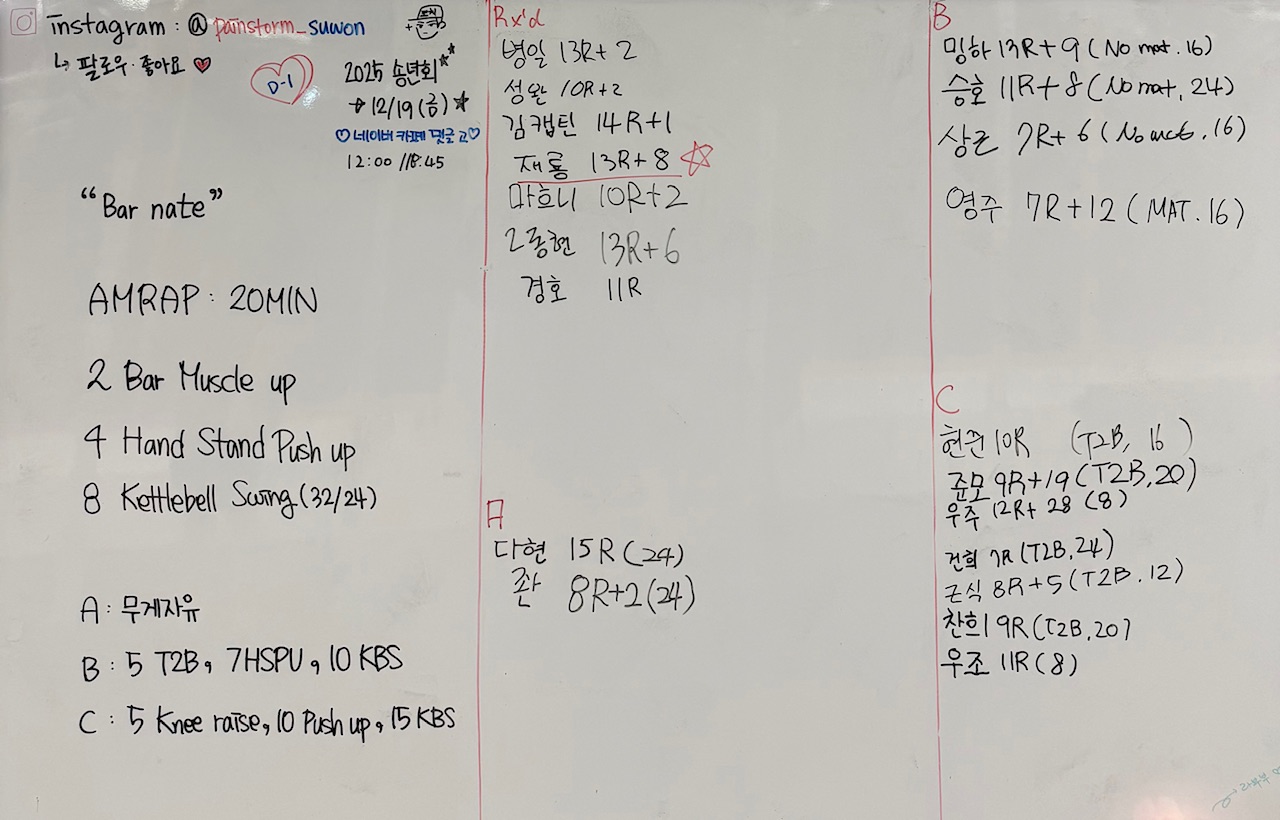 instagram : @painstorm_suwon
↳ 팔로우·좋아요 ♥
D-1
2025 송년회
→ 12/19(금) ★
♡네이버 카페 댓글 고♡
12:00 / 18:45
“Bar nate”
AMRAP : 20MIN
2 Bar Muscle up
4 Hand Stand Push up
8 Kettlebell Swing (32/24)
A : 무게자유
B : 5 T2B, 7HSPU, 10 KBS
C : 5 Knee raise, 10 Push up, 15 KBS
Rx'd
병일 13R+2
성완 10R+2
김캡틴 14R+1
재룡 13R+8 ☆
마흐니 10R+2
2종현 13R+6
경호 11R
A
다현 15R (24)
좐 8R+2 (24)
B
밍하 13R+9 (No mat. 16)
승호 11R+8 (No mat, 24)
상근 7R+6 (No mat. 16)
영주 7R+12 (MAT. 16)
C
현준 10R (T2B, 16)
준모 9R+19 (T2B, 20)
우주 12R+28 (8)
건희 7R (T2B, 24)
근식 8R+5 (T2B. 12)
찬희 9R (T2B, 20)
우조 11R (8)